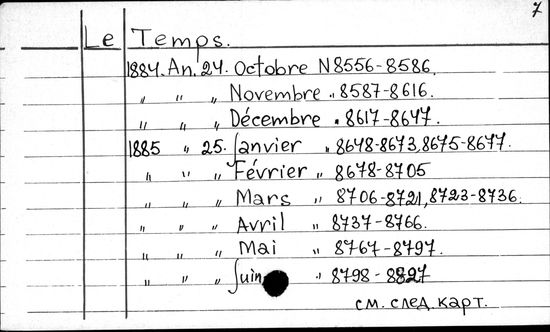 7
Le Temps.
1884. An. 24. Octobre N 8556-8586.
„ „ „ Novembre „ 8587-8616.
„ „ „ Décembre „ 8617-8647.
1885 „ 25. Janvier „ 8648-8673, 8675-8677.
„ „ „ Février „ 8678-8705
„ „ „ Mars „ 8706-8721, 8723-8736.
„ „ „ Avril „ 8737-8766.
„ „ „ Mai „ 8767-8797.
„ „ „ Juin „ 8798-8827
см. след. карт.